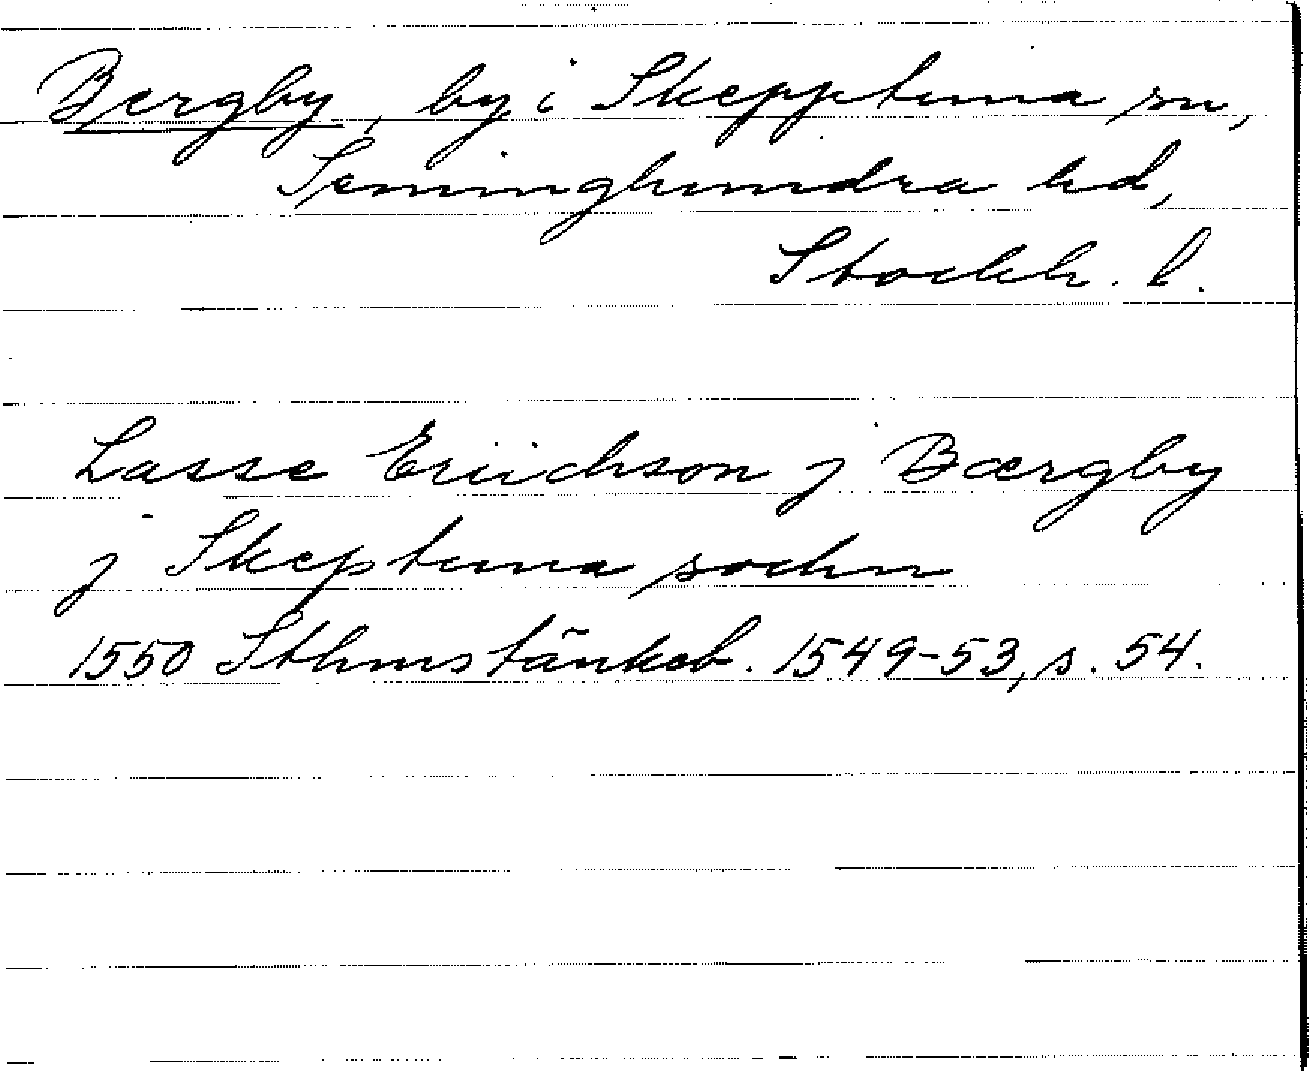 Bergby, by i Skepptuna sn,
Seminghundra hd,
Stockh. l.
Lasse Eriichson j Bærgby
j Skeptuna sochn
1550 Sthms tänkeb. 1549-53, s. 54.